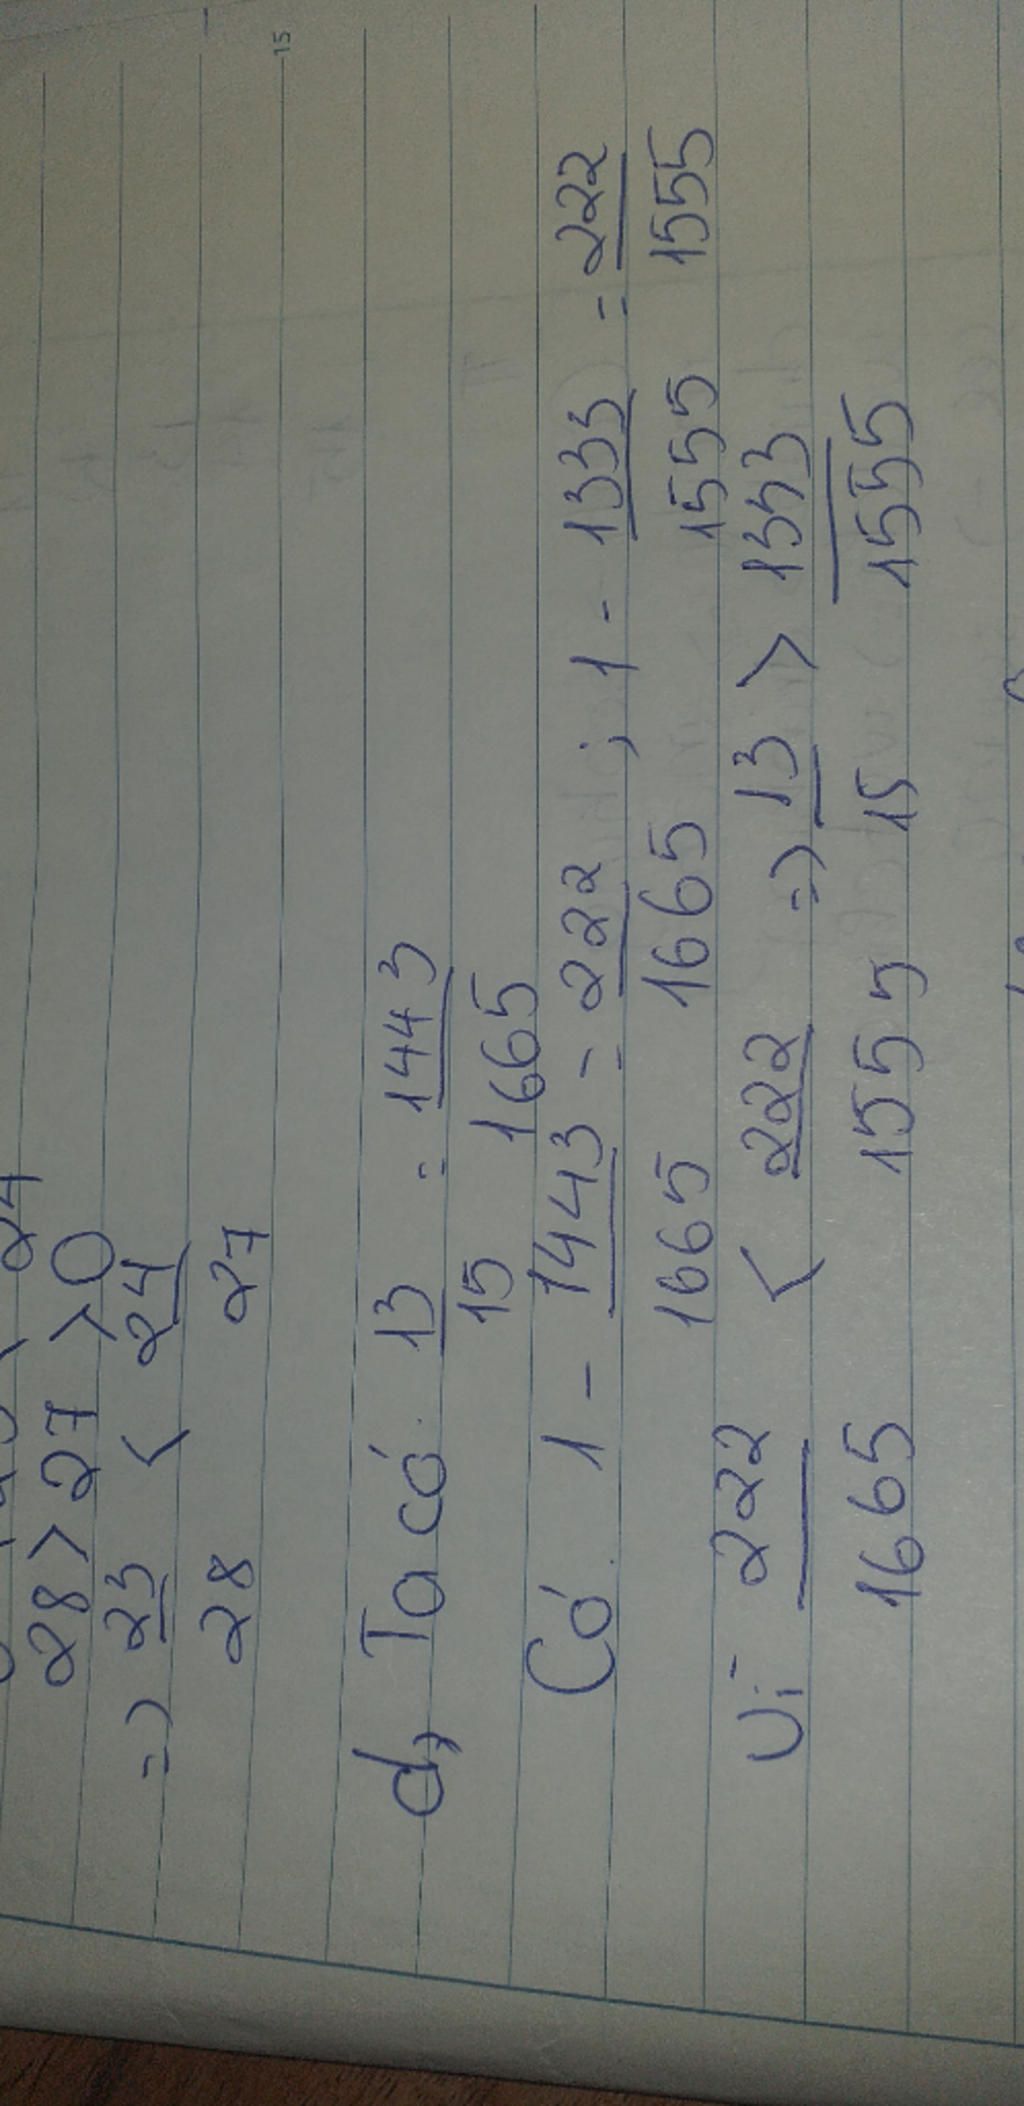 15
24
28 > 27 > 0
=> 23/28 < 24/27
d, Ta có. 13/15 = 1443/1665
Có. 1 - 1443/1665 = 222/1665 ; 1 - 1333/1555 = 222/1555
Vì 222/1665 < 222/1555 => 13/15 > 1333/1555